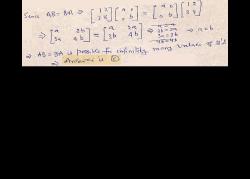 Since AB = BA ⇒ [1 2; 3 4] [a 0; 0 b] = [a 0; 0 b] [1 2; 3 4]
⇒ [a 2b; 3a 4b] = [a 2a; 3b 4b] ⇒ a = a
2b = 2a
3a = 3b
4b = 4b
⇒ a = b
⇒ AB = BA is possible for infinitely many values of B's
⇒ Answer is